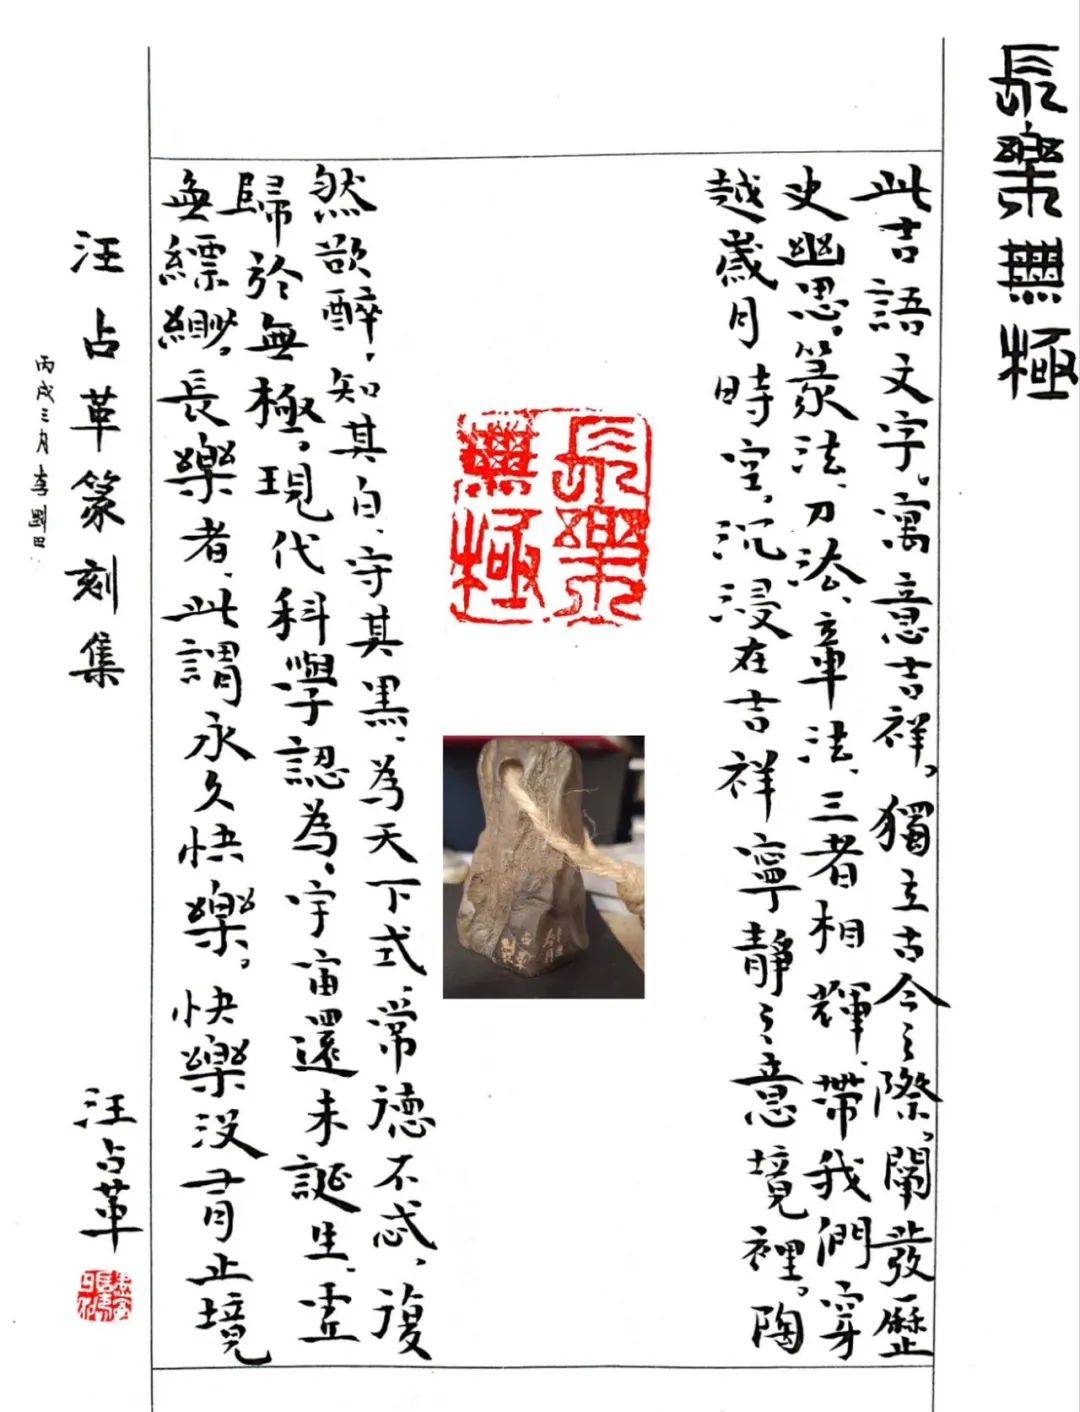 長樂無極
此吉語文字。寓意吉祥。獨立古今之際。闡發歷
史幽思。篆法、刀法、章法、三者相輝、帶我們穿
越歲月時空。沉浸在吉祥寧靜之意境裡。陶
長樂無極
然欲醉。知其白、守其黑、為天下式、常德不忒。復
歸於無極。現代科學認為、宇宙還未誕生、虛
無縹緲。長樂者、此謂永久快樂。快樂没有止境
汪占革篆刻集
丙戌三月李剛田
汪占革